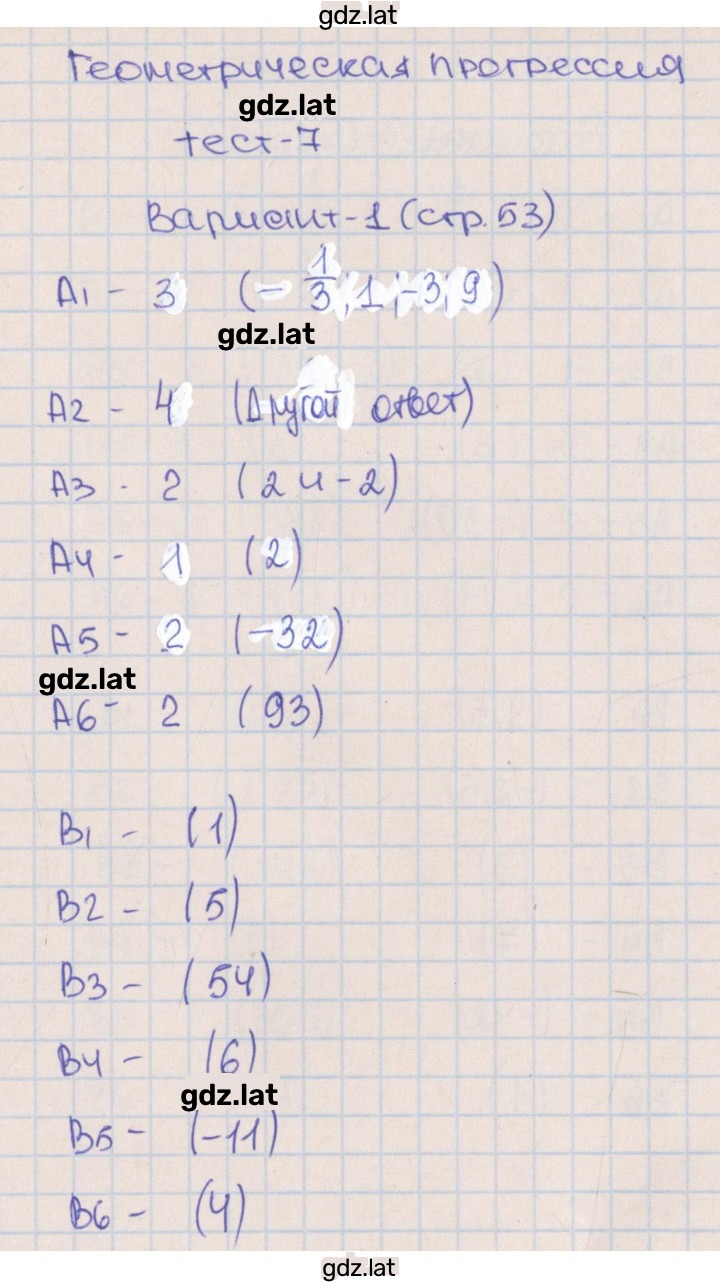 gdz.lat
Геометрическая прогрессия
gdz.lat
тест-7
Вариант-1 (стр. 53)
А1 - 3 (-1/3; 1; -3; 9)
gdz.lat
А2 - 4 (Другой ответ)
А3 - 2 (2 и -2)
А4 - 1 (2)
А5 - 2 (-32)
gdz.lat
А6 - 2 (93)
В1 - (1)
В2 - (5)
В3 - (54)
В4 - (6)
gdz.lat
В5 - (-11)
В6 - (4)
gdz.lat